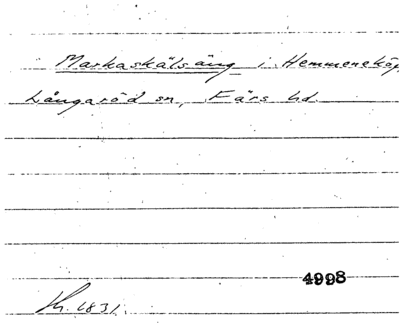 Markaskälsäng i Hemmeneköp,
Långaröd sn, Färs hd.
4998
Kr. 1831.